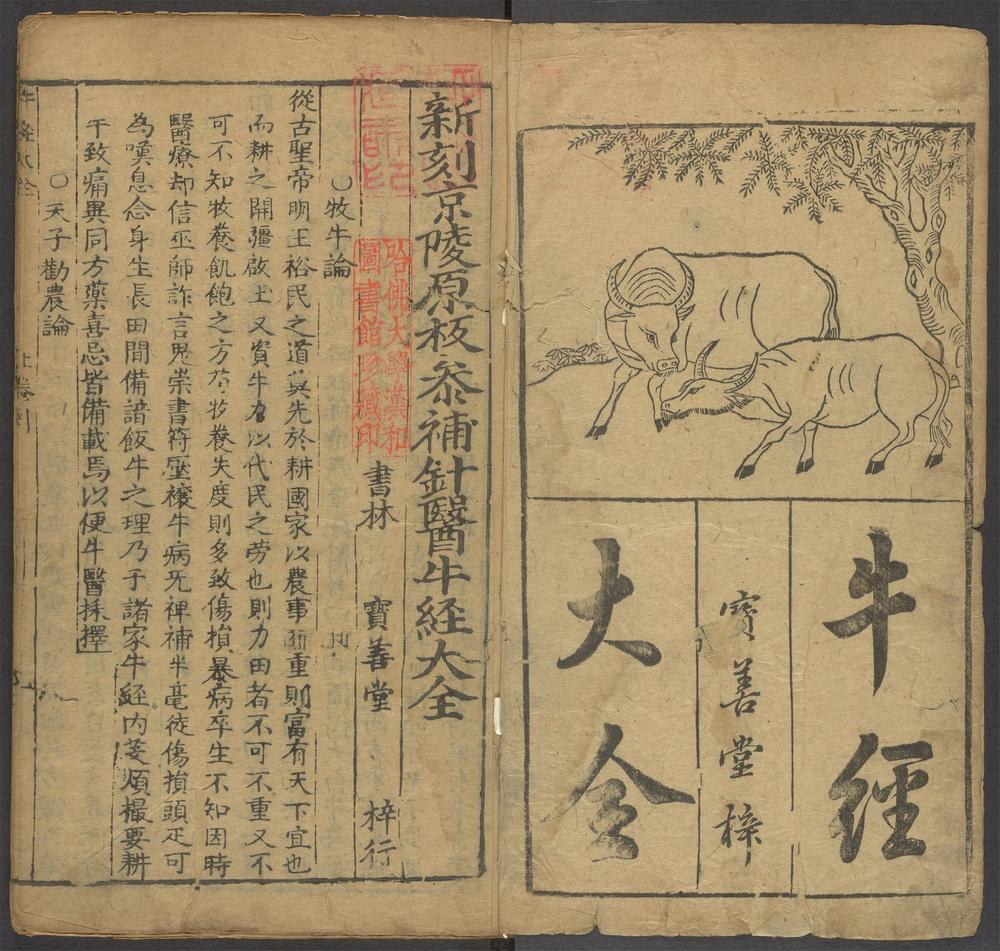 牛經
寶善堂梓
大全
新刻京陵原板參補針醫牛經大全
書林 寶善堂 梓行
哈佛大學漢和
圖書館珍藏印
○牧牛論
從古聖帝明王裕民之道莫先於耕國家以農事為重則富有天下宜也
而耕之開疆啟土又資牛力以代民之勞也則力田者不可不重又不
可不知牧養飢飽之方苐牧養失度則多致傷損暴病卒生不知因時
醫療却信巫師詐言鬼祟書符壓禳牛病旡裨補半毫徒傷損頭疋可
為嘆息念身生長田間備諳飯牛之理乃于諸家牛經內芟煩撮要耕
干致痛異同方藥喜忌皆備載焉以便牛醫採擇
○天子勸農論
牛經大全
上卷